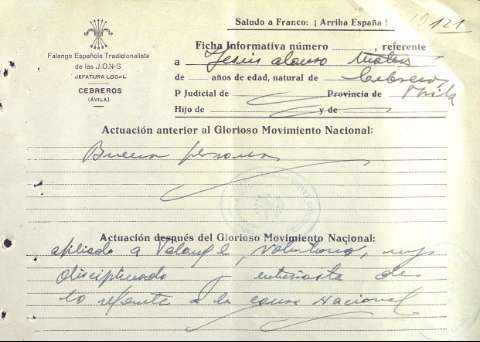 Saludo a Franco: ¡ Arriba España !
121
Falange Española Tradicionalista
de las J.O.N-S
JEFATURA LOCAL
CEBREROS
(ÁVILA)
Ficha informativa número , referente
a Jesus alonso
de años de edad, natural de Cebreros
P Judicial de Provincia de Avila
Hijo de y de
Actuación anterior al Glorioso Movimiento Nacional:
Buena persona
Actuación después del Glorioso Movimiento Nacional:
afiliado a Falange, Voluntario, muy
disciplinado y entusiasta de
lo referente a la causa Nacional